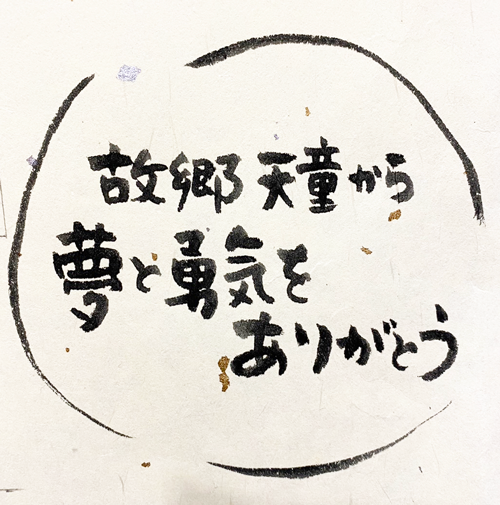 故郷天童から
夢と勇気を
ありがとう